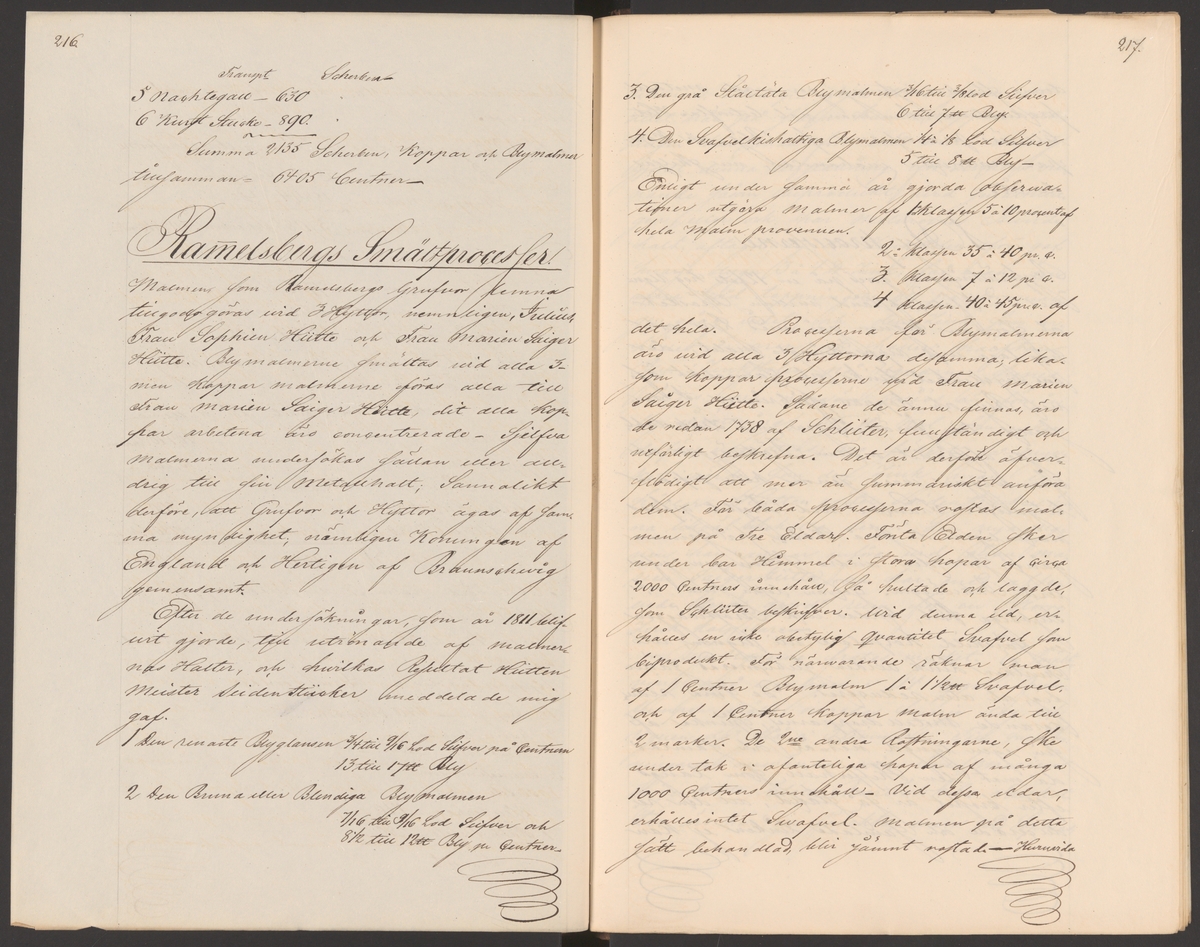 216.
Transpt Scherben
5 Nachtegall – 630
6 Kunst Stucke – 890.
Summa 2135 Scherben, Koppar och Blymalmer
tillsamman = 6405 Centner –
Ramelsbergs Smältprocesser!
Malmen som Ramelsbergs Grufvor lemna
tillgodogöras vid 3 Hyttor, nemnligen, Julius,
Frau Sophien Hütte och Frau Marien Saiger
Hütte. Blymalmerne smältas vid alla 3–
men Kopparmalmerne föras alla till
Frau Marien Saiger Hütte, dit alla Kop-
par arbetena äro concentrerade – Sjelfva
Malmerna undersökas sällan eller all-
drig till sin Metallhalt; Sannolikt
derföre, att Grufvor och Hyttor ägas af sam-
ma myndighet, nämligen Konungen af
England och Hertigen af Braunschwig
gemensamt.
Efter de undersökningar, som år 1811 blif-
vit gjorde, till utrönande af malmer-
nas Halter, och hvilkas Resultat Hütten
Meister Seidenstücker meddelade mig
gaf.
1 Den renaste Blyglansen 3/4 till 9/16 Lod Silfver på Centnern
13 till 17 ℔ Bly
2 Den Bruna eller Blendiga Blymalmen
7/16 till 9/16 Lod Silfver och
8 1/2 till 12 ℔ Bly pr Centner–
217.
3. Den grå Ståltäta Blymalmen 3/16 till 3/8 lod Silfver
6 till 7 ℔ Bly.
4. Den Svafvelkishaltiga Blymalmen 1/4 à 1/8 Lod Silfver
5 till 8 ℔ Bly –
Enligt under samma år gjorda observa-
tioner utgöra Malmer af 1: Klassen 5 à 10 procent af
hela Malm provenuen.
2: Klassen 35 à 40 pr. c.
3. Klassen 7 à 12 pr c.
4 Klassen 40 à 45 pr c. af
det hela. Processerna för Blymalmerna
äro vid alla 3 Hyttorna desamma; lika-
som Koppar processerne vid Frau Marien
Saiger Hütte. Sådane de ännu finnas, äro
de redan 1738 af Schlüter, fullständigt och
utförligt beskrefna. Det är derföre öfver-
flödigt att mer än summariskt anföra
dem. För båda processerna rostas mal-
men på Tre Eldar. Första Elden sker
under bar Himmel i stora hopar af circa
2000 Centners innehåll, så hultade och laggde,
som Schlüter beskrifver. Vid denna eld, er-
hålles en icke obetydlig qvantitet Svafvel som
biprodukt. För närwarande räknar man
af 1 Centner Blymalm 1 à 1 1/2 ℔ Svafvel.
och af 1 Centner Koppar Malm ända till
2 marker. De 2ne andra Rostningarne, ske
under tak i ofanteliga hopar af många
1000 Centners innehåll – Vid dessa eldar,
erhålles intet Svafvel. Malmen på detta
sätt behandlad, blir jämnt rostad. – Huruvida